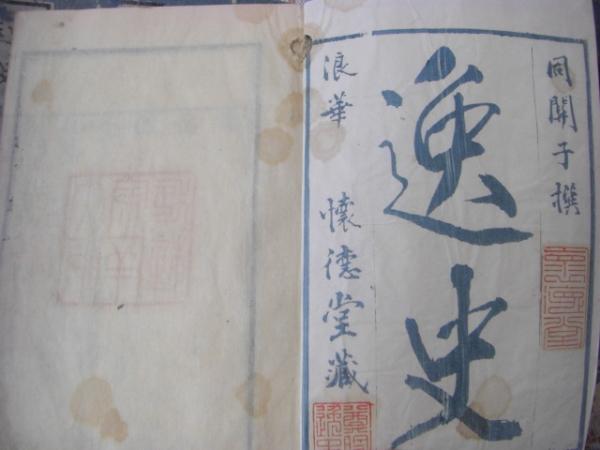 同關子撰
逸史
浪華 懷德堂藏